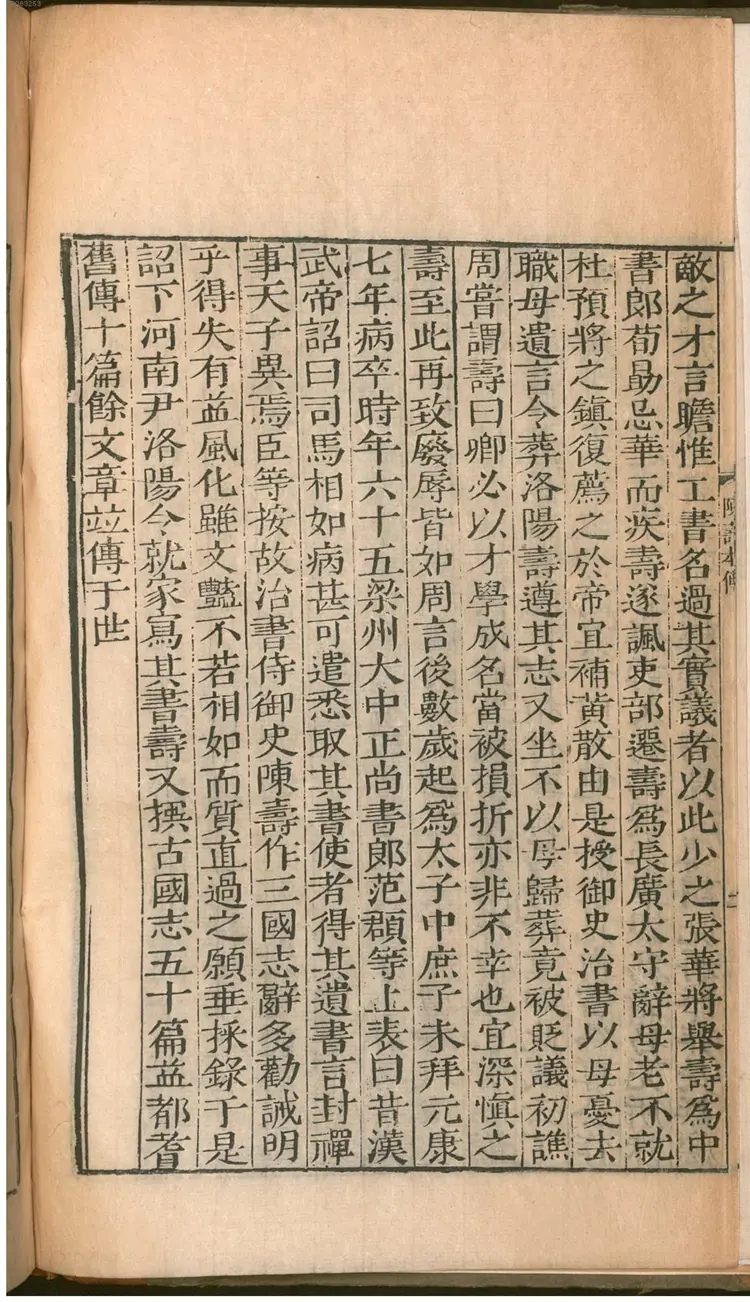 敵之才言瞻惟工書名過其實議者以此少之張華將舉壽爲中
書郎荀勗忌華而疾壽遂諷吏部遷壽爲長廣太守辭母老不就
杜預將之鎮復薦之於帝宜補黃散由是授御史治書以母憂去
職母遺言令葬洛陽壽遵其志又坐不以母歸葬竟被貶議初譙
周嘗謂壽曰卿必以才學成名當被損折亦非不幸也宜深愼之
壽至此再致廢辱皆如周言後數歲起爲太子中庶子未拜元康
七年病卒時年六十五梁州大中正尚書郎范頵等上表曰昔漢
武帝詔曰司馬相如病甚可遣悉取其書使者得其遺書言封禪
事天子異焉臣等按故治書侍御史陳壽作三國志辭多勸誡明
乎得失有益風化雖文豔不若相如而質直過之願垂採錄于是
詔下河南尹洛陽令就家寫其書壽又撰古國志五十篇益都耆
舊傳十篇餘文章竝傳于世